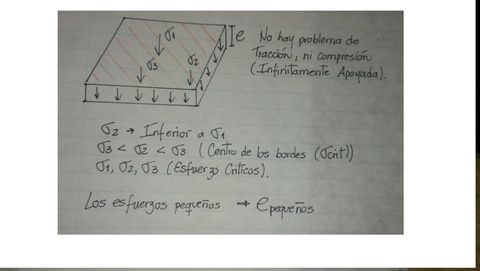 σ1
σ3
σ2
e
No hay problema de
tracción, ni compresión
(Infinitamente Apoyada).
σ2 → Inferior a σ1
σ3 < σ2 < σ3 (Centro de los bordes (σcrit))
σ1, σ2, σ3 (Esfuerzo Criticos).
Los esfuerzos pequeños → e pequeños